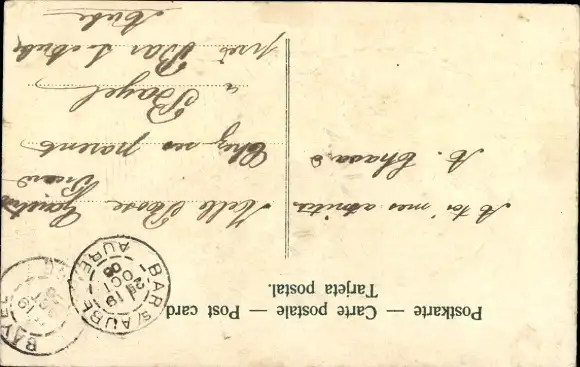 Postkarte — Carte postale — Post card
Tarjeta postal.
BAR S AUBE
AUBE
19
OCT
08
BAYEL
A toi mes amitiés
A. Chasard
Melle Rose
Chez ses parents
à
Bayel
près Bar s Aube
Aube